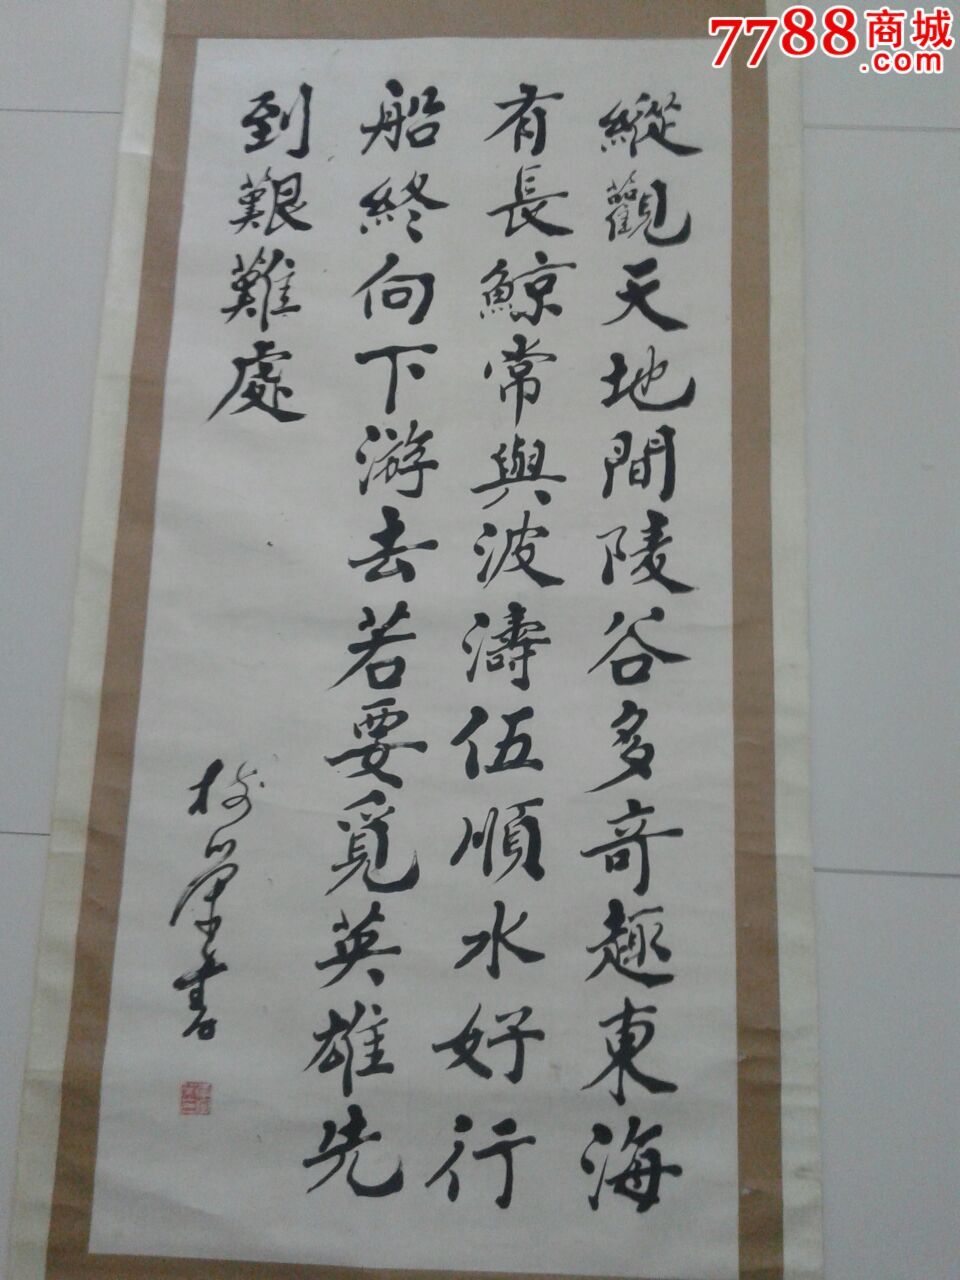 縱觀天地間陵谷多奇趣東海
有長鯨常與波濤伍順水好行
船終向下游去若要覓英雄先
到艱難處
書
7788商城
.com